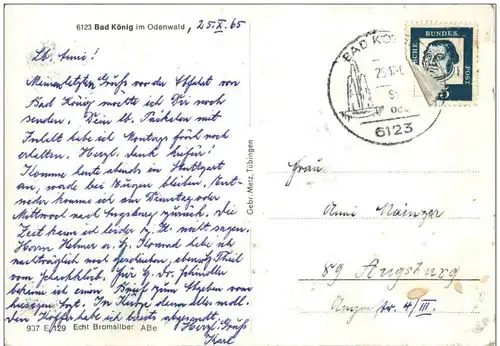 6123 Bad König im Odenwald, 25.X.65
Lb. Anni!
Meinen letzten Gruß vor der Abfahrt von
Bad König möchte ich Dir noch
senden. Dein lb. Päckchen mit
Inhalt habe ich Montags früh noch
erhalten. Herzl. Dank hiefür!
Komme heute abends in Stuttgart
an, werde bei Eugen bleiben. Ent-
weder komme ich am Dienstag oder
Mittwoch nach Augsburg zurück. Die
Zeit kann ich leider z. Zt. nicht sagen.
Herrn habe ich
nachträglich noch geschrieben, ebenso Theil
vom . Für H. Dr. Schindler
bekam ich einen Brief zum Abgeben vom
hiesigen Arzt. In Kürze dann alles mdl.
Den Koffer habe ich bereits abgesandt.
Herzl. Gruß
Karl
937 E/129 Echt Bromsilber ABe
Gebr. Metz, Tübingen
BAD KÖ
6123
BUNDES
POST
5
Frau
Anni Mainzer
89 Augsburg
str. 4/III.